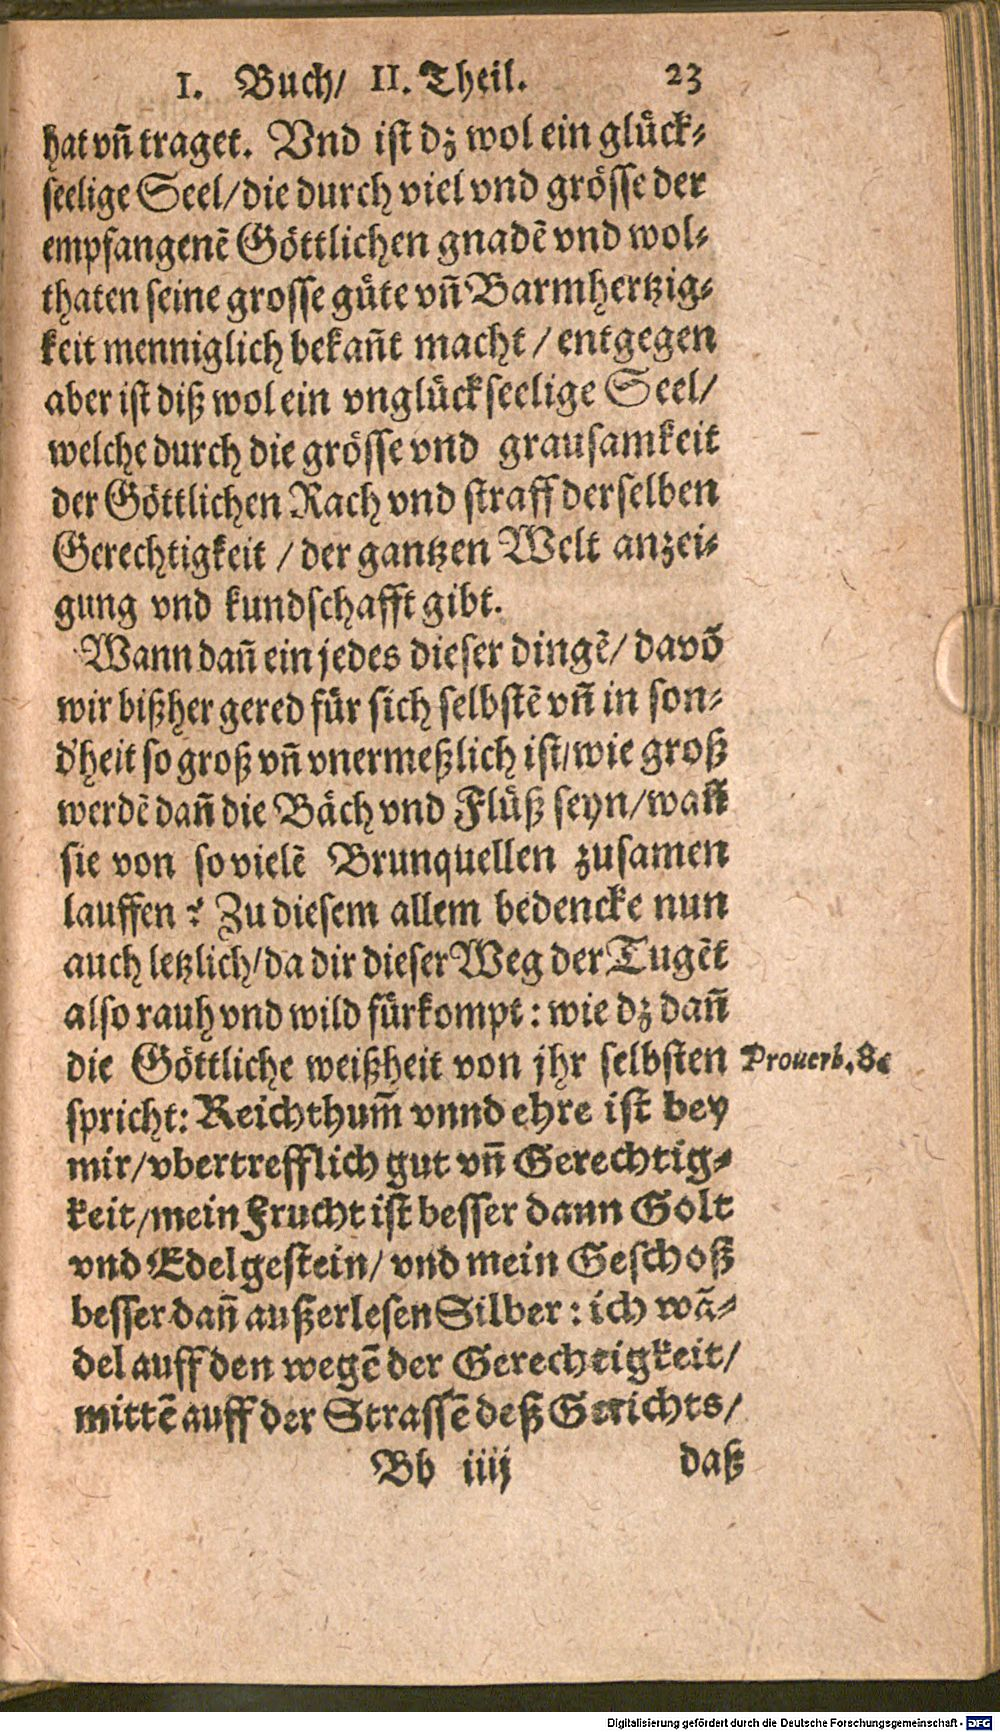 I. Buch/ II. Theil. 23
hat vñ traget. Vnd ist dz wol ein glück-
seelige Seel/ die durch viel vnd grösse der
empfangenẽ Göttlichen gnadẽ vnd wol-
thaten seine grosse güte vñ Barmhertzig-
keit menniglich bekañt macht / entgegen
aber ist diß wol ein vnglückseelige Seel/
welche durch die grösse vnd grausamkeit
der Göttlichen Rach vnd straff derselben
Gerechtigkeit / der gantzen Welt anzei-
gung vnd kundschafft gibt.
Wann dañ ein jedes dieser dingẽ/ davõ
wir bißher gered für sich selbstẽ vñ in son-
d'heit so groß vñ vnermeßlich ist/ wie groß
werdẽ dañ die Bäch vnd Flüß seyn/ wañ
sie von so vielẽ Brunquellen zusamen
lauffen? Zu diesem allem bedencke nun
auch letzlich/ da dir dieser Weg der Tugẽt
also rauh vnd wild fürkompt: wie dz dañ
die Göttliche weißheit von jhr selbsten
Prouerb. 8.
spricht: Reichthum̃ vnnd ehre ist bey
mir/ vbertrefflich gut vñ Gerechtig-
keit/ mein Frucht ist besser dann Golt
vnd Edelgestein/ vnd mein Geschoß
besser dañ außerlesen Silber: ich wã-
del auff den wegẽ der Gerechtigkeit/
mittẽ auff der Strassẽ deß Gerichts/
Bb iiij daß
Digitalisierung gefördert durch die Deutsche Forschungsgemeinschaft - DFG